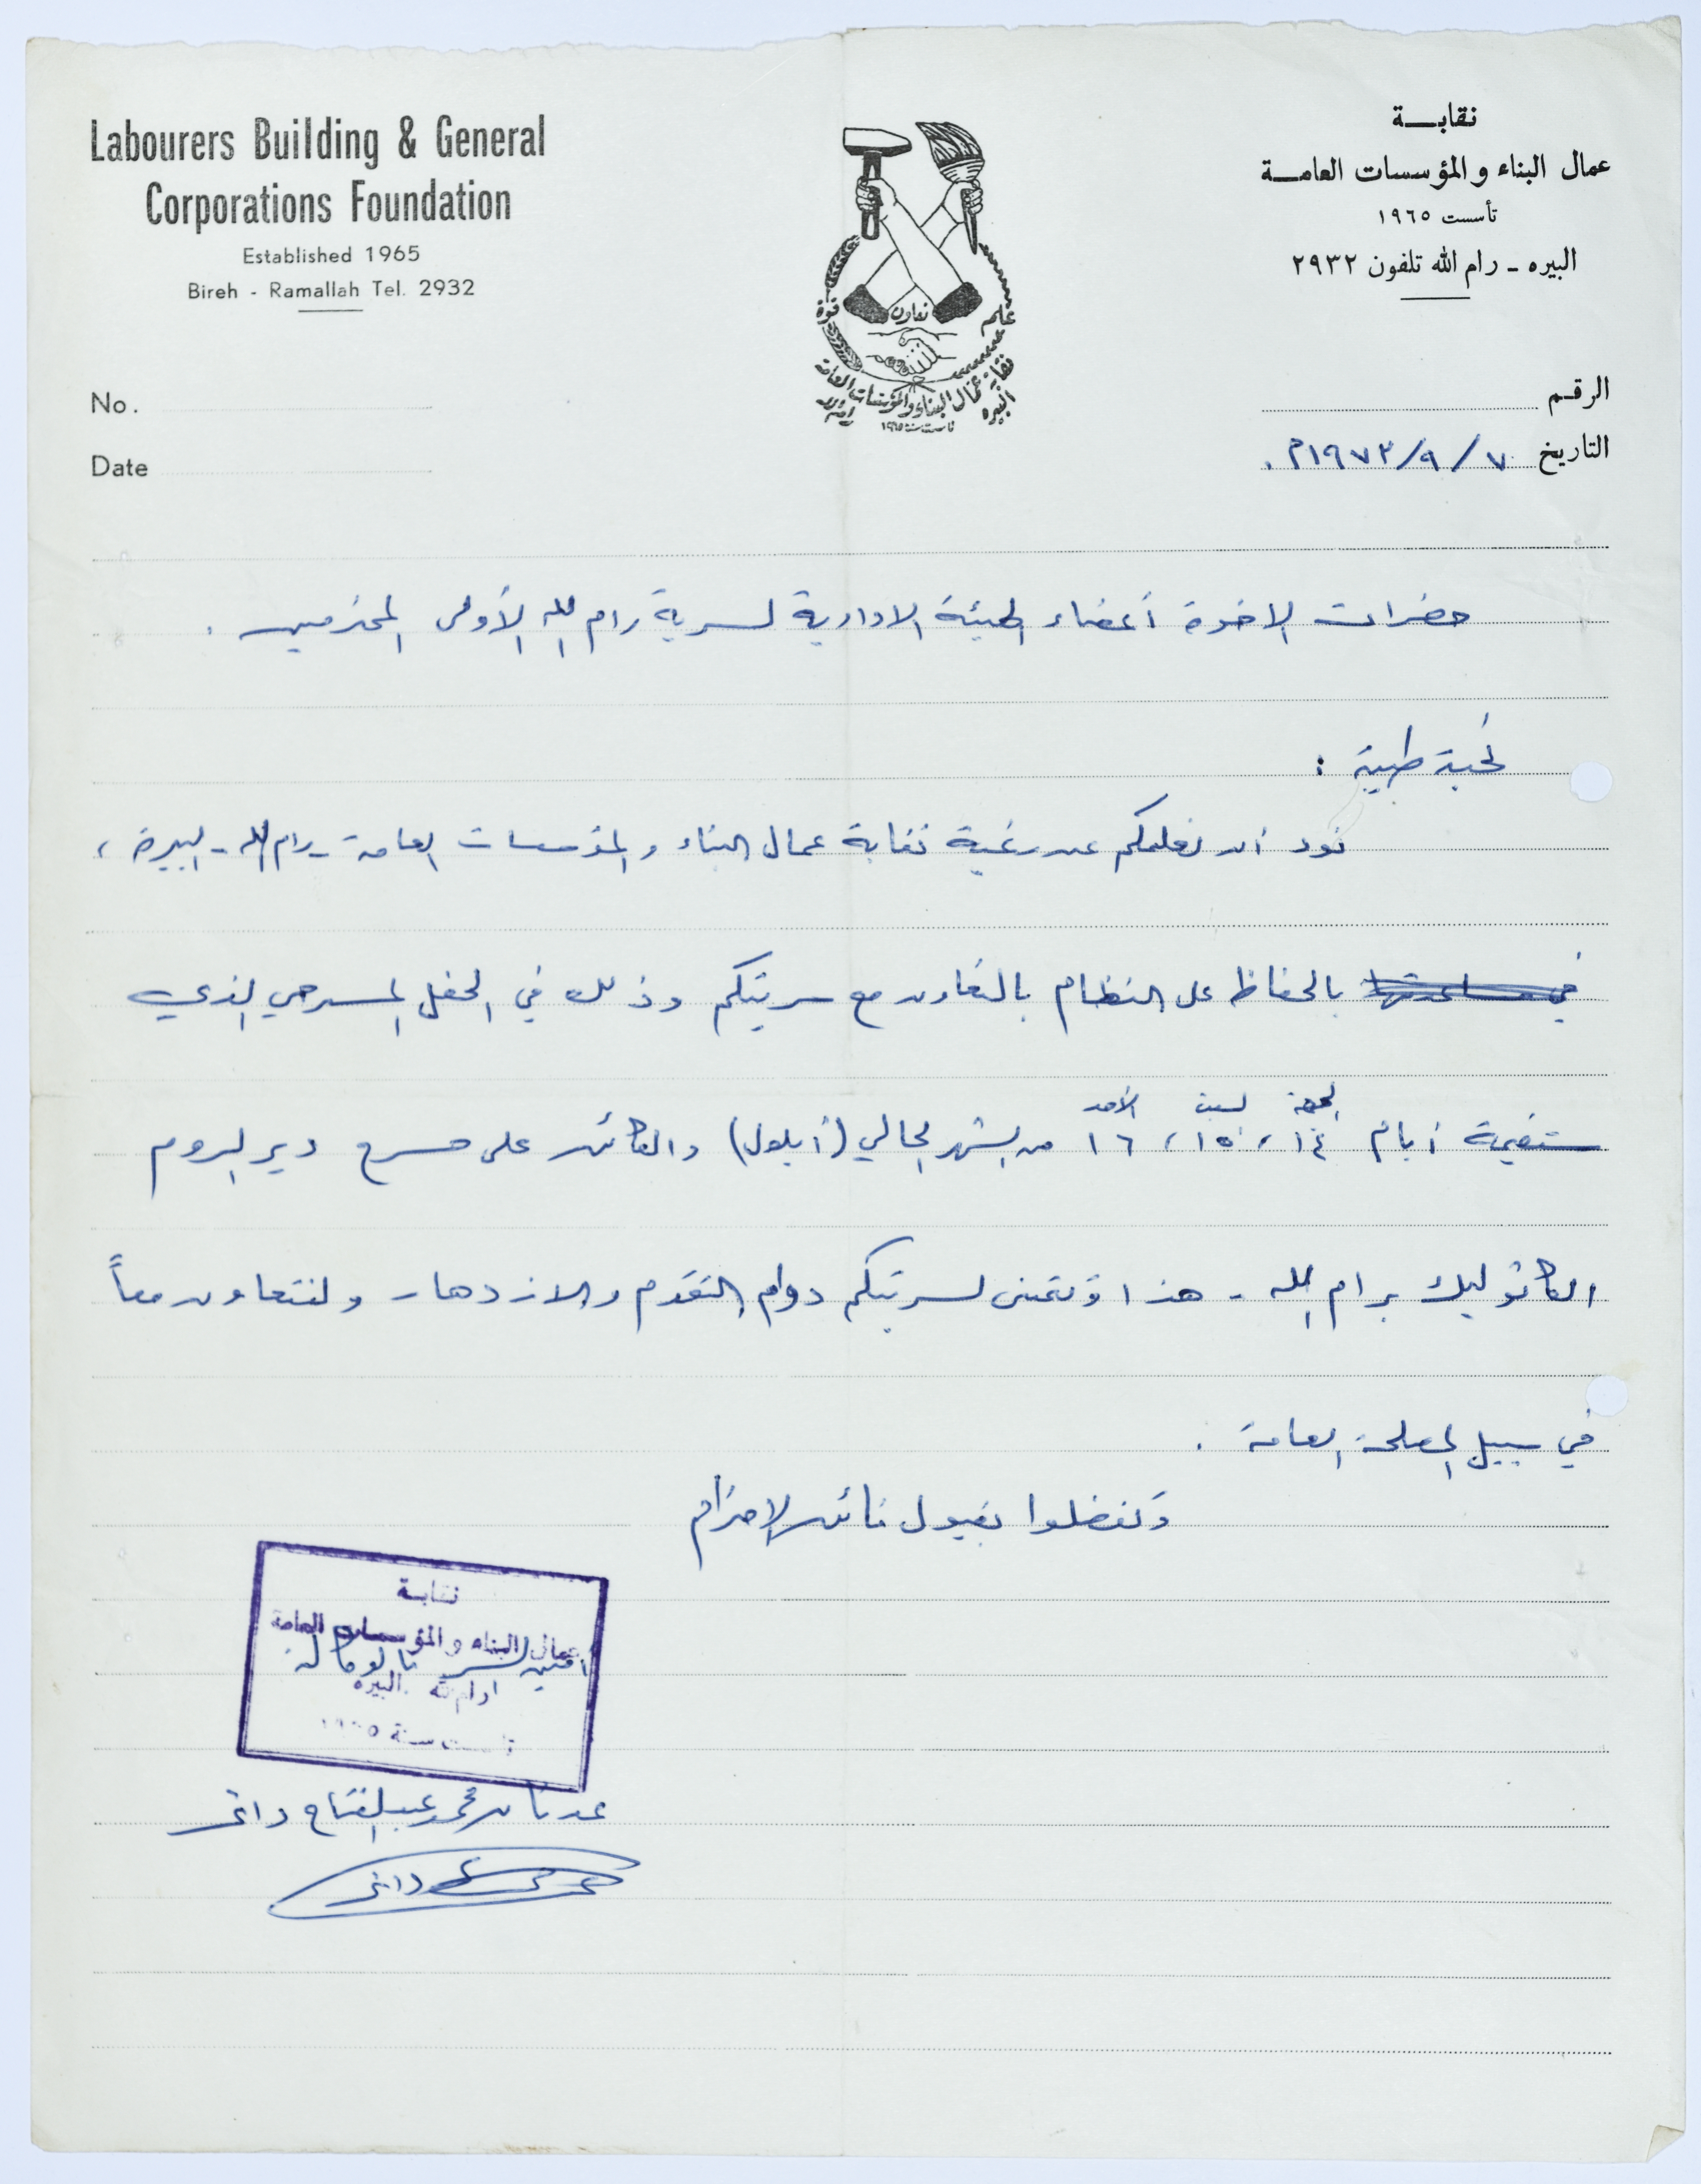 Labourers Building & General
Corporations Foundation
Established 1965
Bireh - Ramallah Tel. 2932
نقابـــة
عمال البناء والمؤسسات العامـــة
تأسست ١٩٦٥
البيره - رام الله تلفون ٢٩٣٢
علم تعاون قوة
نقابة عمال البناء والمؤسسات العامة
البيره رام الله
تأسست سنة ١٩٦٥
No.
Date
الرقـم
التاريخ ٧ / ٩ / ١٩٧٣م.
حضرات الاخوة أعضاء الهيئة الادارية لسرية رام الله الأولى المحترمين .
تحية طيبة :
نود أن نعلمكم عن رغبة نقابة عمال البناء والمؤسسات العامة - رام الله - البيرة ،
في مساعدتها بالحفاظ على النظام بالتعاون مع سريتكم وذلك في الحفل المسرحي الذي
الجمعة السبت الأحد
ستقيمة أيام ١٤ ، ١٥ ، ١٦ من الشهر الحالي (أيلول) والكائن على مسرح دير الروم
الكاثوليك برام الله - هذا ونتمنى لسريتكم دوام التقدم والازدهار ولنتعاون معاً
في سبيل المصلحة العامة .
وتفضلوا بقبول فائق الاحترام
نقابة
عمال البناء والمؤسسات العامة
رام الله البيره
تأسست سنة ١٩٦٥
أمين السر بالوكالة
عدنان محمد عبد الفتاح داغر